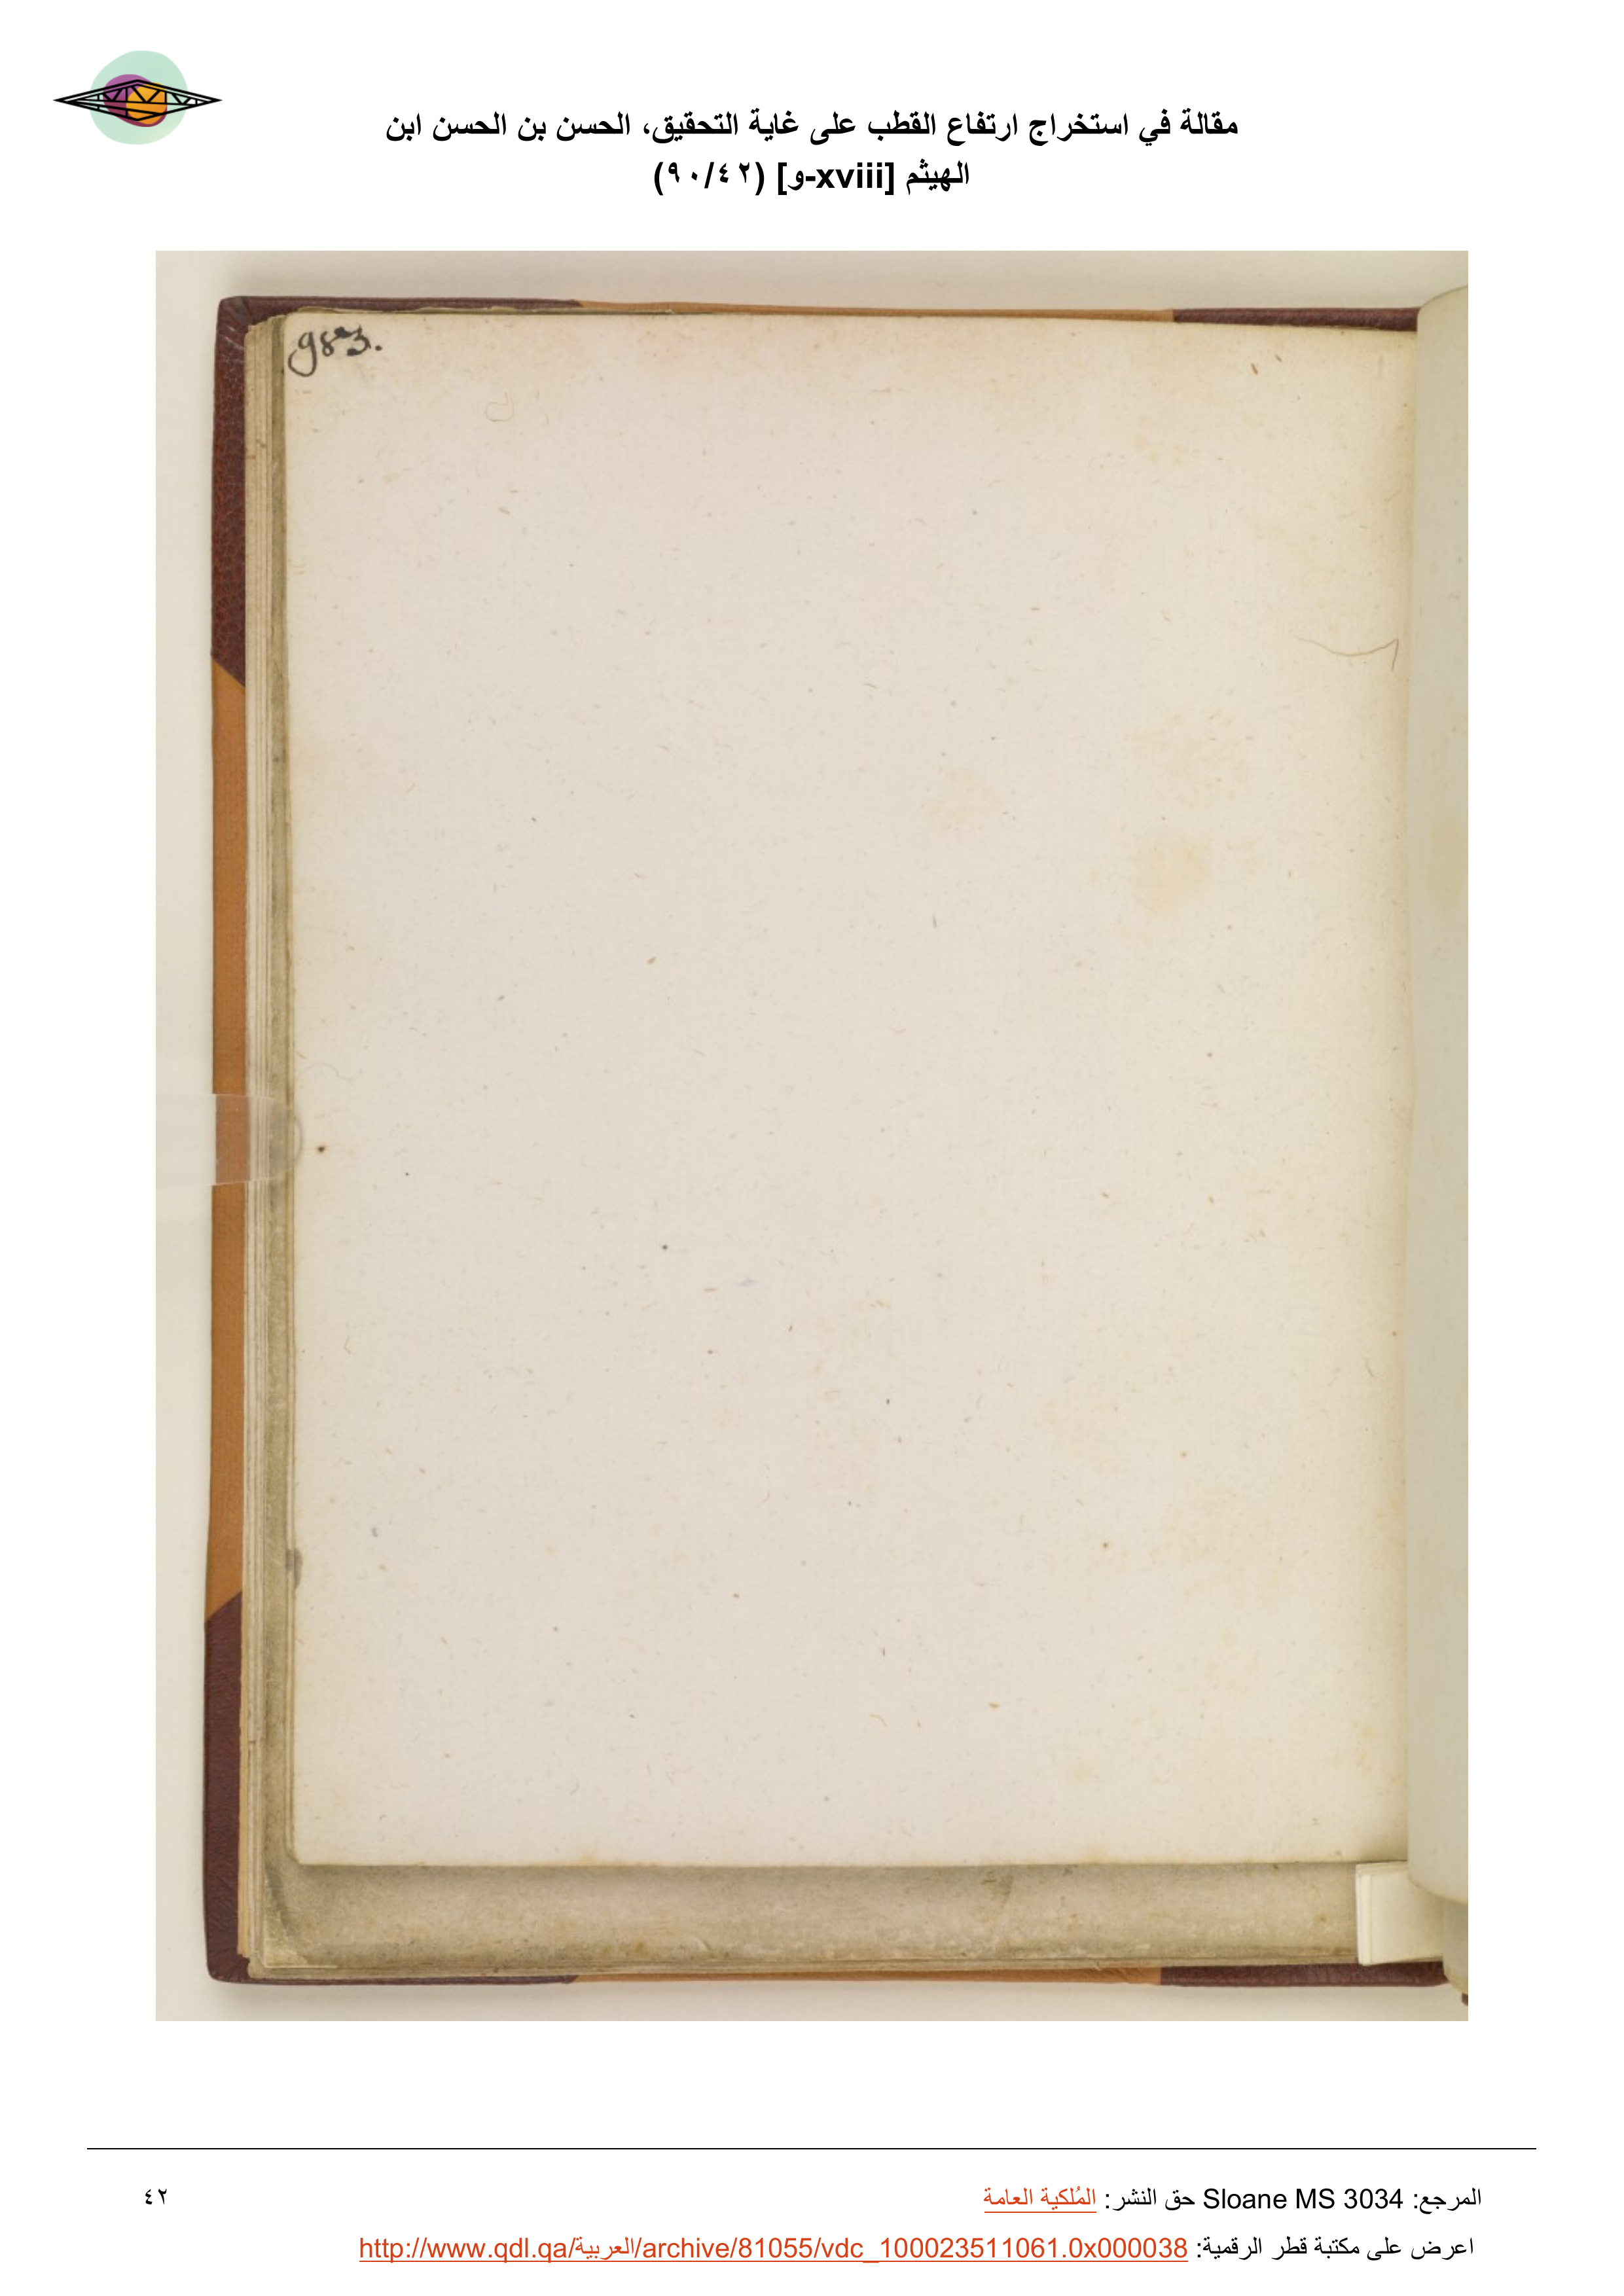 مقالة في استخراج ارتفاع القطب على غاية التحقيق، الحسن بن الحسن ابن
الهيثم [xviii-و] (٩٠/٤٢)
983.
المرجع: Sloane MS 3034 حق النشر: المُلكية العامة
٤٢
اعرض على مكتبة قطر الرقمية: http://www.qdl.qa/العربية/archive/81055/vdc_100023511061.0x000038